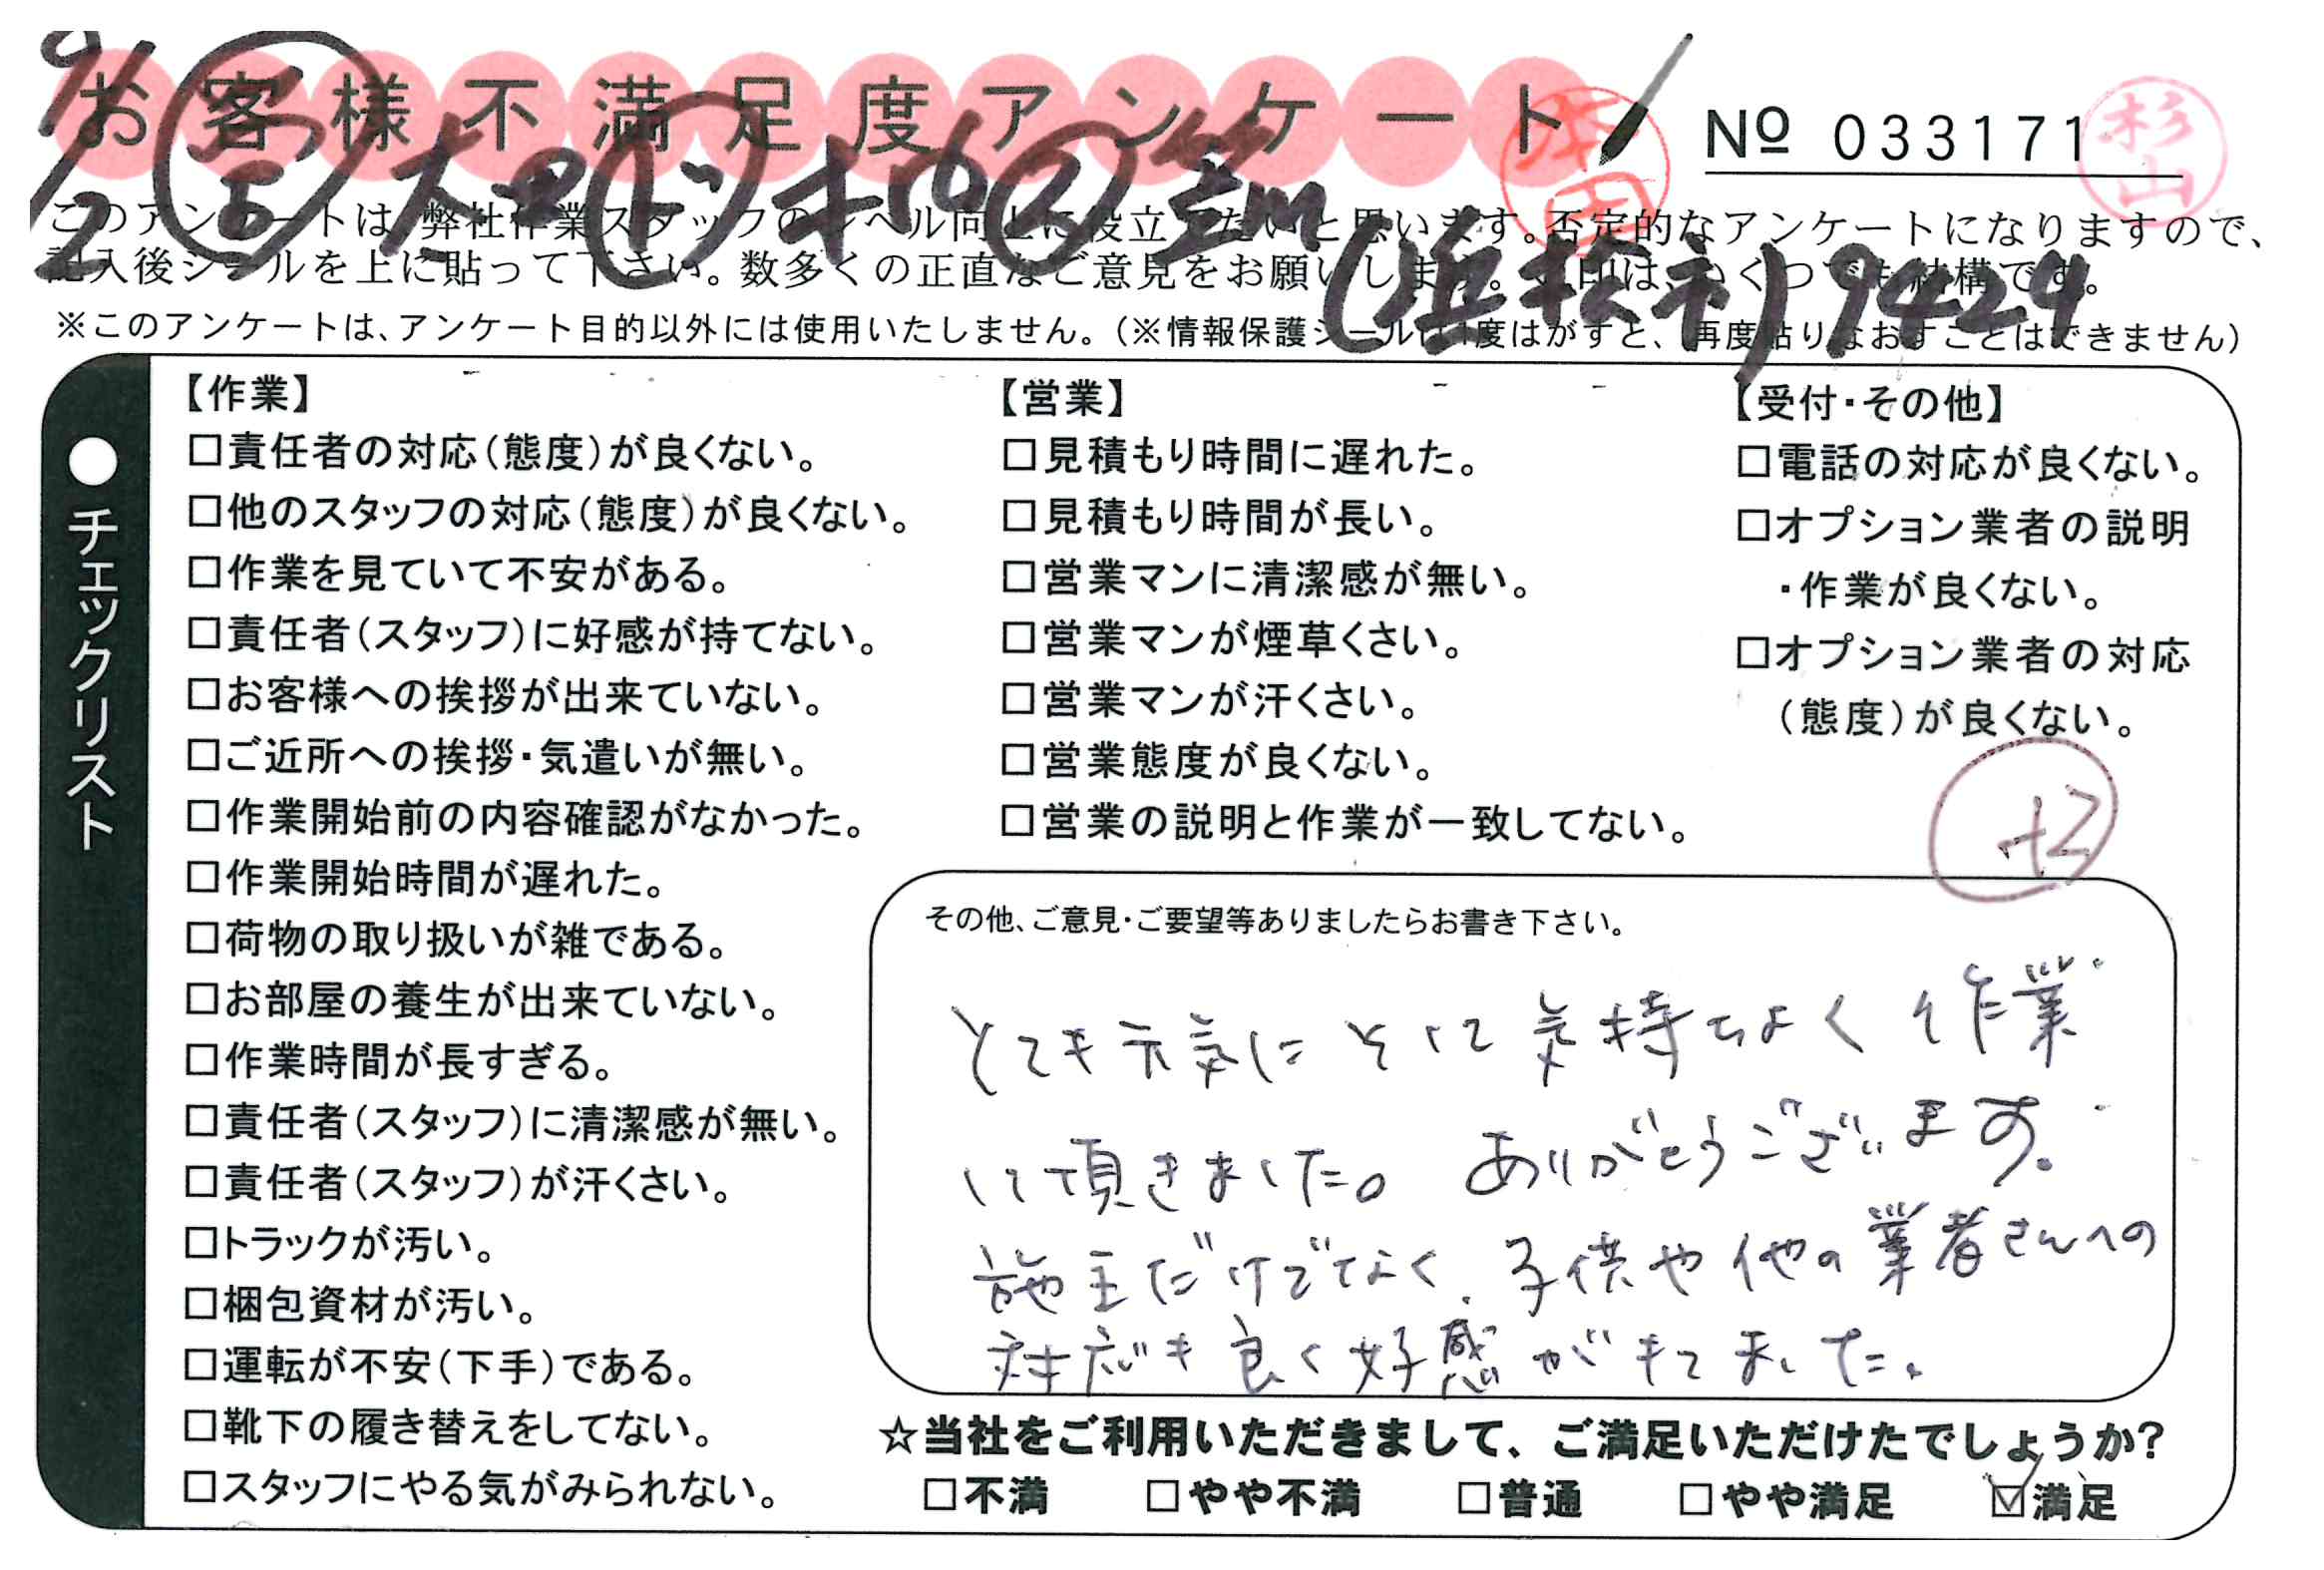 お客様不満足度アンケート
No 033171
杉山
本田
(浜松市) 9424
このアンケートは、弊社作業スタッフのレベル向上に役立てたいと思います。否定的なアンケートになりますので、
記入後シールを上に貼って下さい。数多くの正直なご意見をお願いします。印は、いくつでも結構です。
※このアンケートは、アンケート目的以外には使用いたしません。(※情報保護シールは1度はがすと、再度貼りなおすことはできません)
●チェックリスト
【作業】
□責任者の対応(態度)が良くない。
□他のスタッフの対応(態度)が良くない。
□作業を見ていて不安がある。
□責任者(スタッフ)に好感が持てない。
□お客様への挨拶が出来ていない。
□ご近所への挨拶・気遣いが無い。
□作業開始前の内容確認がなかった。
□作業開始時間が遅れた。
□荷物の取り扱いが雑である。
□お部屋の養生が出来ていない。
□作業時間が長すぎる。
□責任者(スタッフ)に清潔感が無い。
□責任者(スタッフ)が汗くさい。
□トラックが汚い。
□梱包資材が汚い。
□運転が不安(下手)である。
□靴下の履き替えをしてない。
□スタッフにやる気がみられない。
【営業】
□見積もり時間に遅れた。
□見積もり時間が長い。
□営業マンに清潔感が無い。
□営業マンが煙草くさい。
□営業マンが汗くさい。
□営業態度が良くない。
□営業の説明と作業が一致してない。
【受付・その他】
□電話の対応が良くない。
□オプション業者の説明
・作業が良くない。
□オプション業者の対応
(態度)が良くない。
+2
その他、ご意見・ご要望等ありましたらお書き下さい。
とても元気に そして気持ちよく 作業
して頂きました。ありがとうございます。
施主だけでなく、子供や他の業者さんへの
対応も良く好感がもてました。
☆当社をご利用いただきまして、ご満足いただけたでしょうか?
□不満 □やや不満 □普通 □やや満足 ☑満足